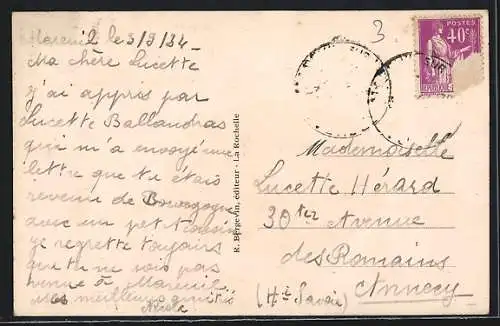 Mareuil le 3/9/34 -
Ma chère Lucette
j'ai appris par
Lucette Ballandras
qui m'a envoyé une
lettre que tu étais
revenu de Bourgogne
avec un petit cousin
je regrette toujours
que tu ne sois pas
venue à Mareuil
Mes meilleures amitiés
3
POSTES
40c
R. Bergevin, éditeur - La Rochelle
Mademoiselle
Lucette Hérard
30 ter Avenue
des Romains
Annecy
(Hte Savoie)